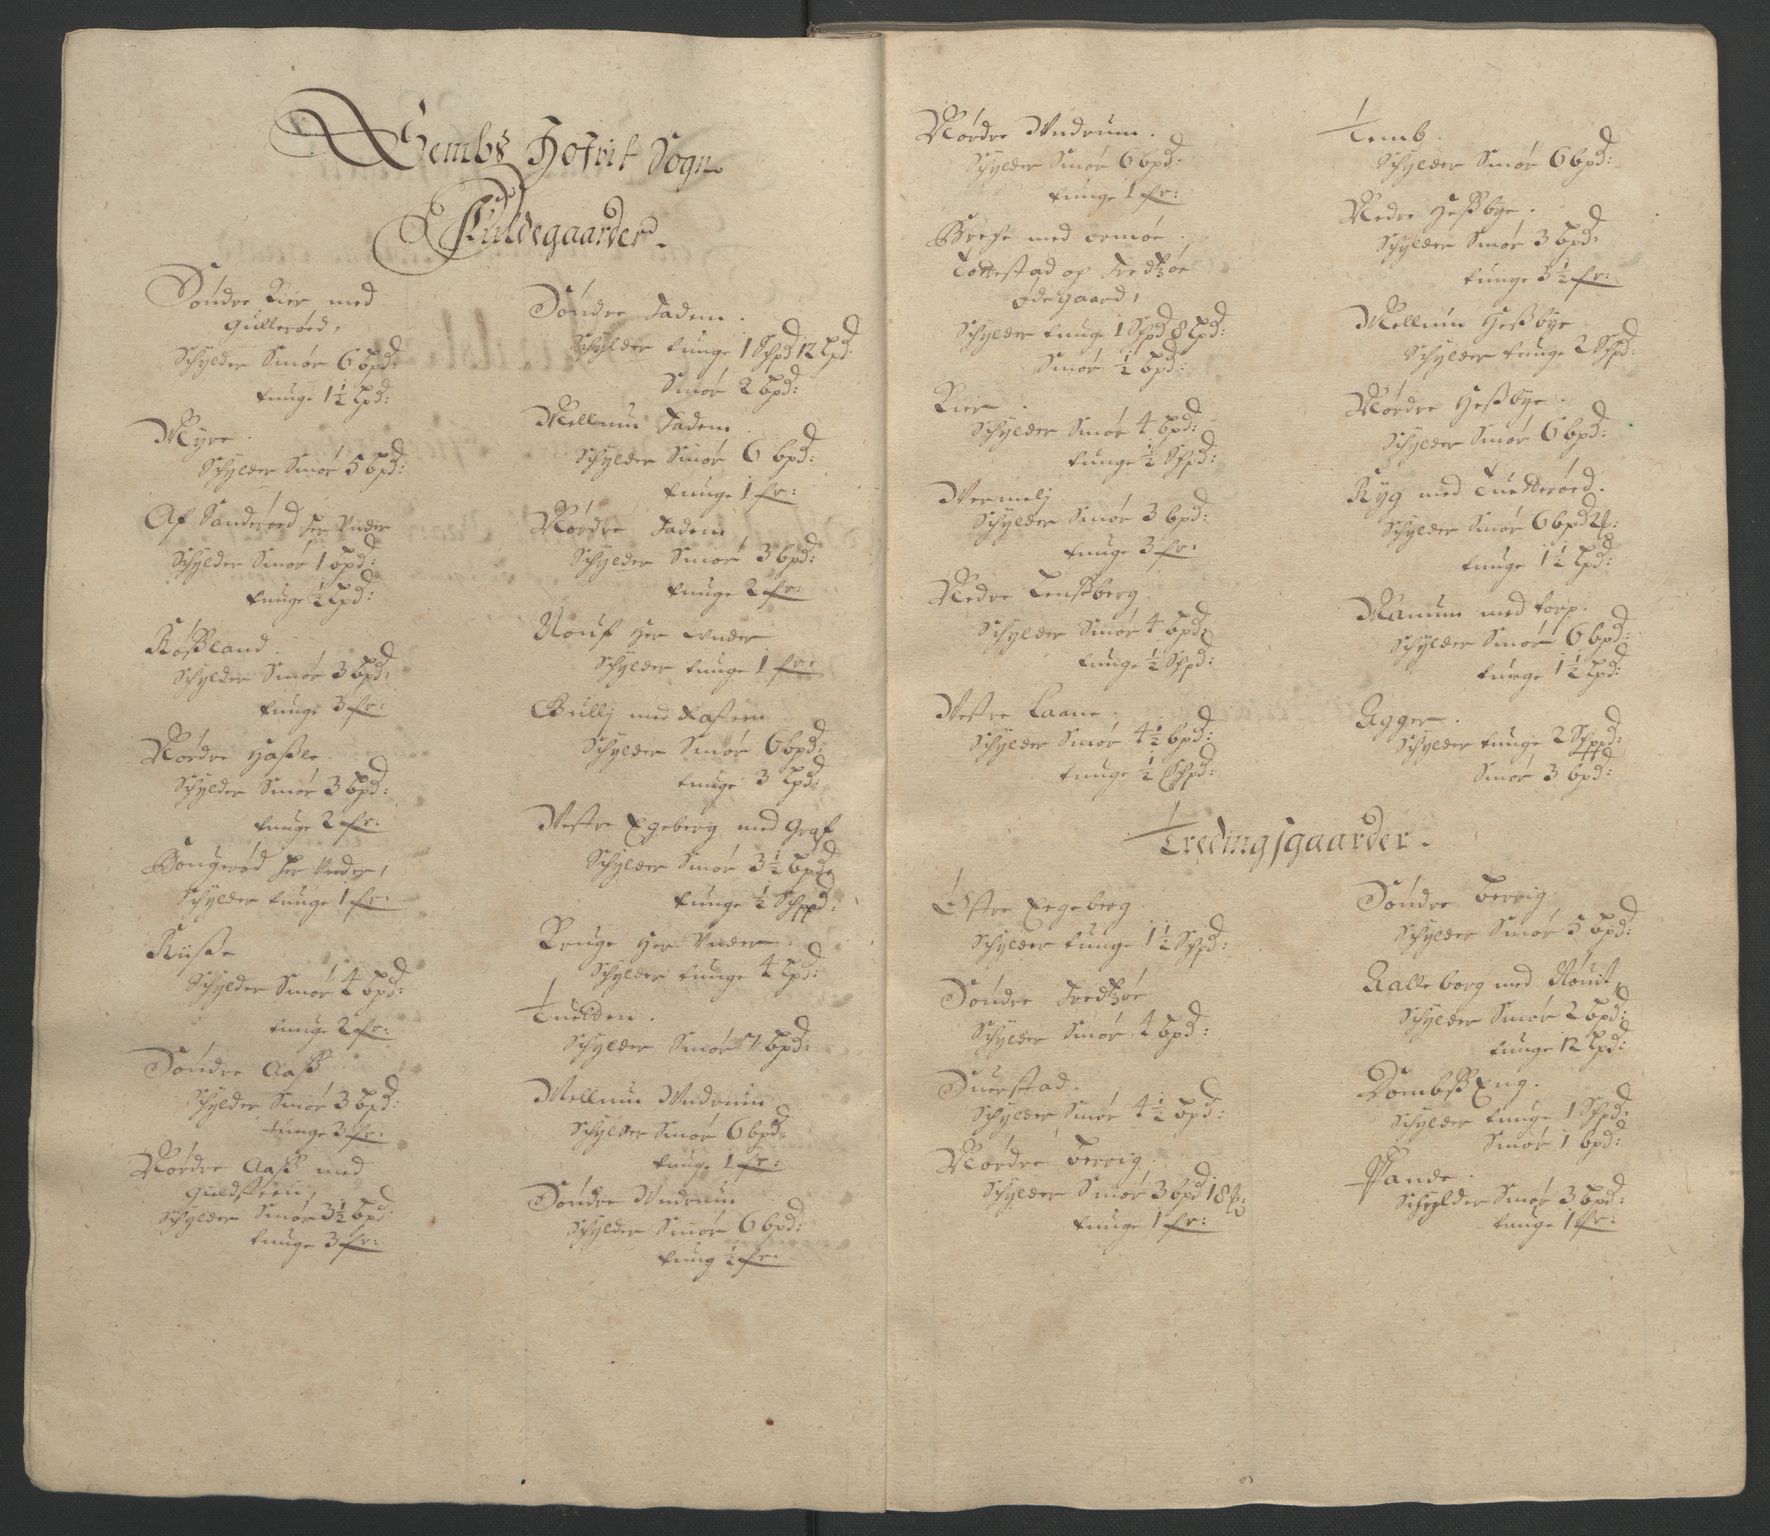 Sembs Hofvit Sogn
Fuldegaarder.
Søndre Kier med
Gullerøed,
Schylder Smør 6 bpd:
tunge 1½ Lpd:
Myre.
Schylder Smør 5 bpd:
Af Sanderøed her Under
Schylder Smør 1 bpd:
tunge ½ Lpd:
Røßland.
Schylder Smør 3 bpd:
tunge 3 fr:
Nordre Haßle.
Schylder Smør 3 bpd:
tunge 2 fr:
Bongerød her Under,
Schylder tunge 1 fr:
Ruße
Schylder Smør 4 bpd:
tunge 2 fr:
Søndre Aaß
Schylder Smør 3 bpd:
tunge 3 fr:
Nordre Aaß med
Guldsteen,
Schylder Smør 3½ bpd:
tunge 3 fr:
Søndre Jadem.
Schylder tunge 1 Schpd 12 Lpd:
Smør 2 bpd:
Mellum Jadem.
Schylder Smør 6 bpd:
tunge 1 fr:
Nordre Jadem
Schylder Smør 3 bpd:
tunge 2 fr:
Rouf Her under
Schylder tunge 1 fr:
Gullj med Rafteen
Schylder Smør 6 bpd:
tunge 3 Lpd:
Vestre Egeberg med Graf
Schylder Smør 3½ bpd
tunge ½ Schppd:
Kruge Her Under.
Schylder tunge 4 Lpd:
Tuelden.
Schylder Smør 7 bpd:
Mellum Undrum
Schylder Smør 6 bpd:
tunge 1 fr:
Søndre Undrum
Schylder Smør 6 bpd:
tung ½ fr:
Nordre Undrum.
Schylder Smør 6 bpd:
tunge 1 fr:
Grefse med ormøe.
Tottestad og Fredhøe
ødegaard,
Schylder tunge 1 Schpd 8 Lpd:
Smør ½ bpd:
Kier.
Schylder Smør 4 bpd:
tunge ½ Schpd:
Vermelj
Schylder Smør 3 bpd:
tunge 3 fr:
Nedre Tenßberg.
Schylder Smør 4 bpd
tunge ½ Schpd:
Vestre Laane.
Schylder Smør 4½ bpd:
tunge ½ Schpd:
Temb.
Schylder Smør 6 bpd:
Nedre Heßbye.
Schylder Smør 3 bpd:
tunge 3½ fr:
Mellum Heßbye
Schylder tunge 2 Schpd:
Nordre Heßbye.
Schylder Smør 6 bpd:
Ryg med Tuetterøed.
Schylder Smør 6 bpd
tunge 1½ Lpd:
Manum med torp.
Schylder Smør 6 bpd:
tunge 1½ Lpd:
Agger.
Schylder tunge 2 Schppd:
Smør 3 bpd:
Tredingsgaarder.
Østre Eegeberg
Schylder tunge 1½ Schpd:
Søndre Fredhøe
Schylder Smør 4 bpd:
Duerstad.
Schylder Smør 4½ bpd:
Nordre berrig.
Schylder Smør 3 bpd 18
tunge 1 fr:
Søndre berrig.
Schylder Smør 5 bpd:
Ralleborg med Rouit,
Schylder Smør 2 bpd:
tunge 12 Lpd:
RombßEng.
Schylder tunge 1 Schpd:
Smør 1 bpd:
Pande.
Schylder Smør 3 bpd:
tunge 1 fr: